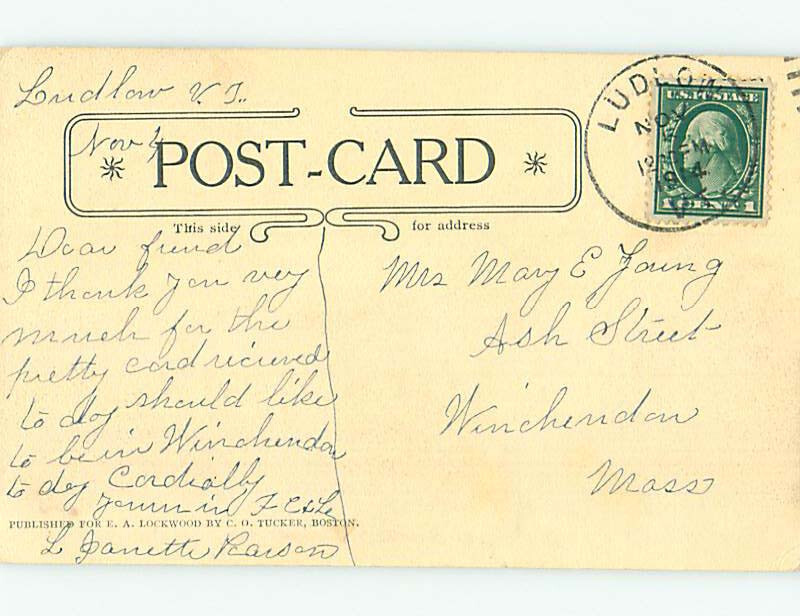 Ludlow V.T.
Nov 4
POST-CARD
This side for address
LUDLOW
NOV
12 M
1914
VT.
U.S. POSTAGE
1 CENT 1
Dear friend
I thank you very
much for the
pretty card recieved
to day should like
to be in Winchendon
to day Cordially
yours in F C & L
L Janette Pearson
Mrs Mary E Young
Ash Street
Winchendon
Mass
PUBLISHED FOR E. A. LOCKWOOD BY C. O. TUCKER, BOSTON.